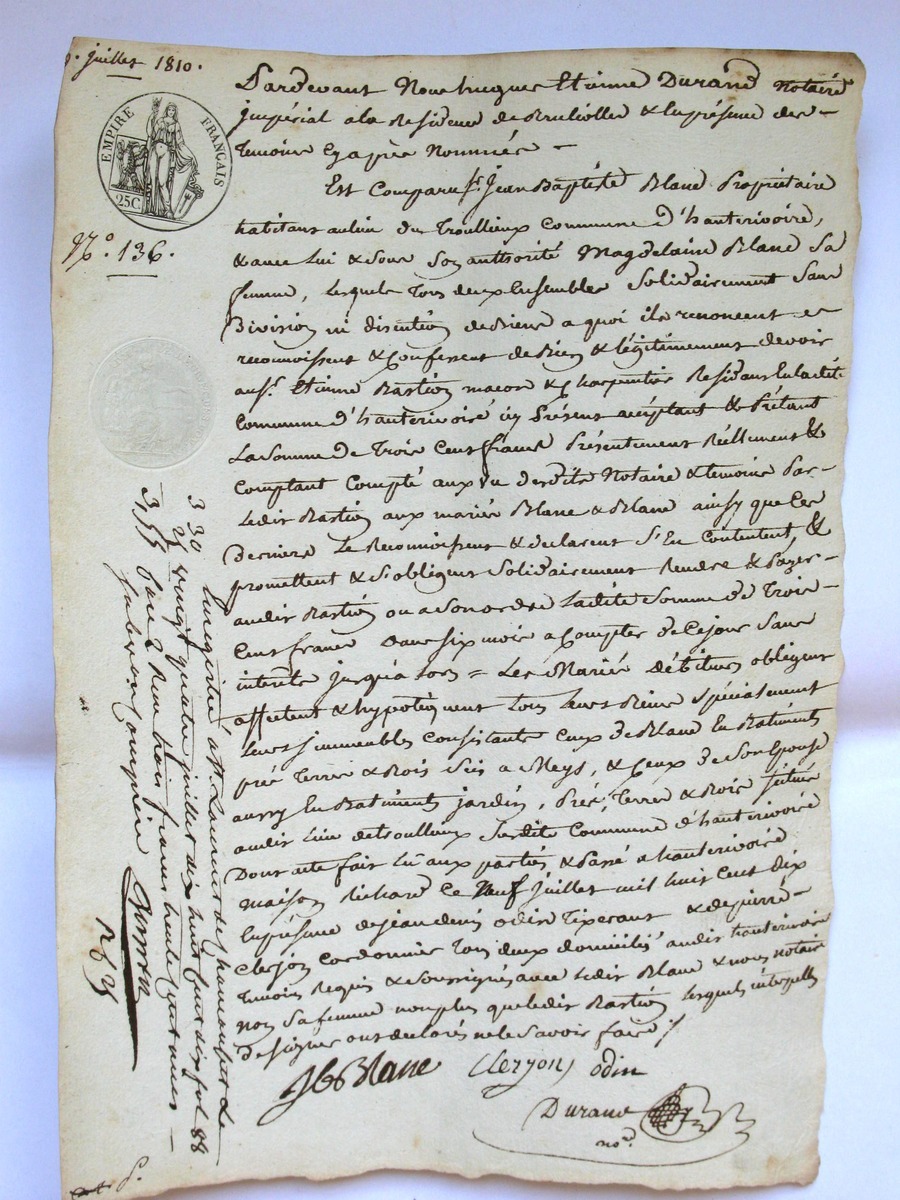 juillet 1810.
EMPIRE FRANÇAIS
25C
N.o 136.
Pardevant Nous hugues Etienne Durand Notaire
jmpérial ala Residence de Brullolles & En présence des
temoins Cyaprès Nommés
Est Comparu sr. Jean Baptiste Blanc Propriétaire
habitant aulieu du Troullieux Commune d'hauterivoire,
& avec Lui & Sous Son authorité Magdelaine Blanc Sa
femme, Lesquels tous deux Ensembles Solidairement Sans
Division ni discution de Biens a quoi ils renoncent
reconnoissent & Confessent de Bien & légitimement devoir
au sr. Etienne Bastion macon & Charpentier Residant En ladite
Commune d'hauterivoire icy Présent acceptant & Prétant
La Somme de Trois Cents francs Présentement Réellement &
Comptant Compté aux vu desdits Notaire & temoins Par
Ledit Bastion aux mariés Blanc & Blanc ainsy que Ces
Derniers Le Reconnoissent & declarent S'En Contentent, &
promettent & S'obligent Solidairement Rendre & Payer
audit Bastion ou a Son ordre Ladite Somme de Trois
Cents francs Dans Six mois a Compter de Ce jour Sans
interêts jusqu'a Lors = Les Mariés débiteurs obligent
affectent & hypotèquent tous Leurs Biens Spécialement
Leurs jmmeubles Consistants Ceux de Blanc En Batiments
pré Terre & Bois Sis a Meys, & Ceux de Son Epouse
aussy En Batiments jardin, Prés, Terres & Bois Situés
audit Lieu du troullieux Susdite Commune d'hauterivoire
Dont acte fait Lu aux parties & Passé a hauterivoire
maison Richard Ce Neuf juillet mil huit Cent dix
En présence de jean denis odin Tixerant & de pierre
Clerjon Cordonnier Tous deux domiciliés audit hauterivoire
temoins Requis & Soussignés avec Ledit Blanc & nous notaire
non Sa femme non plus que Ledit Bastion Lesquels interpellés
de Signer ont declarés ne le Savoir faire /
JB Blanc Clerjon odin
Durand
no.re
Enregistré a St. Laurent de Chamousset Le
vingt quatre juillet dix huit Cent dix fol 88
Case 2 Reçu trois francs trente
3 30
3,55